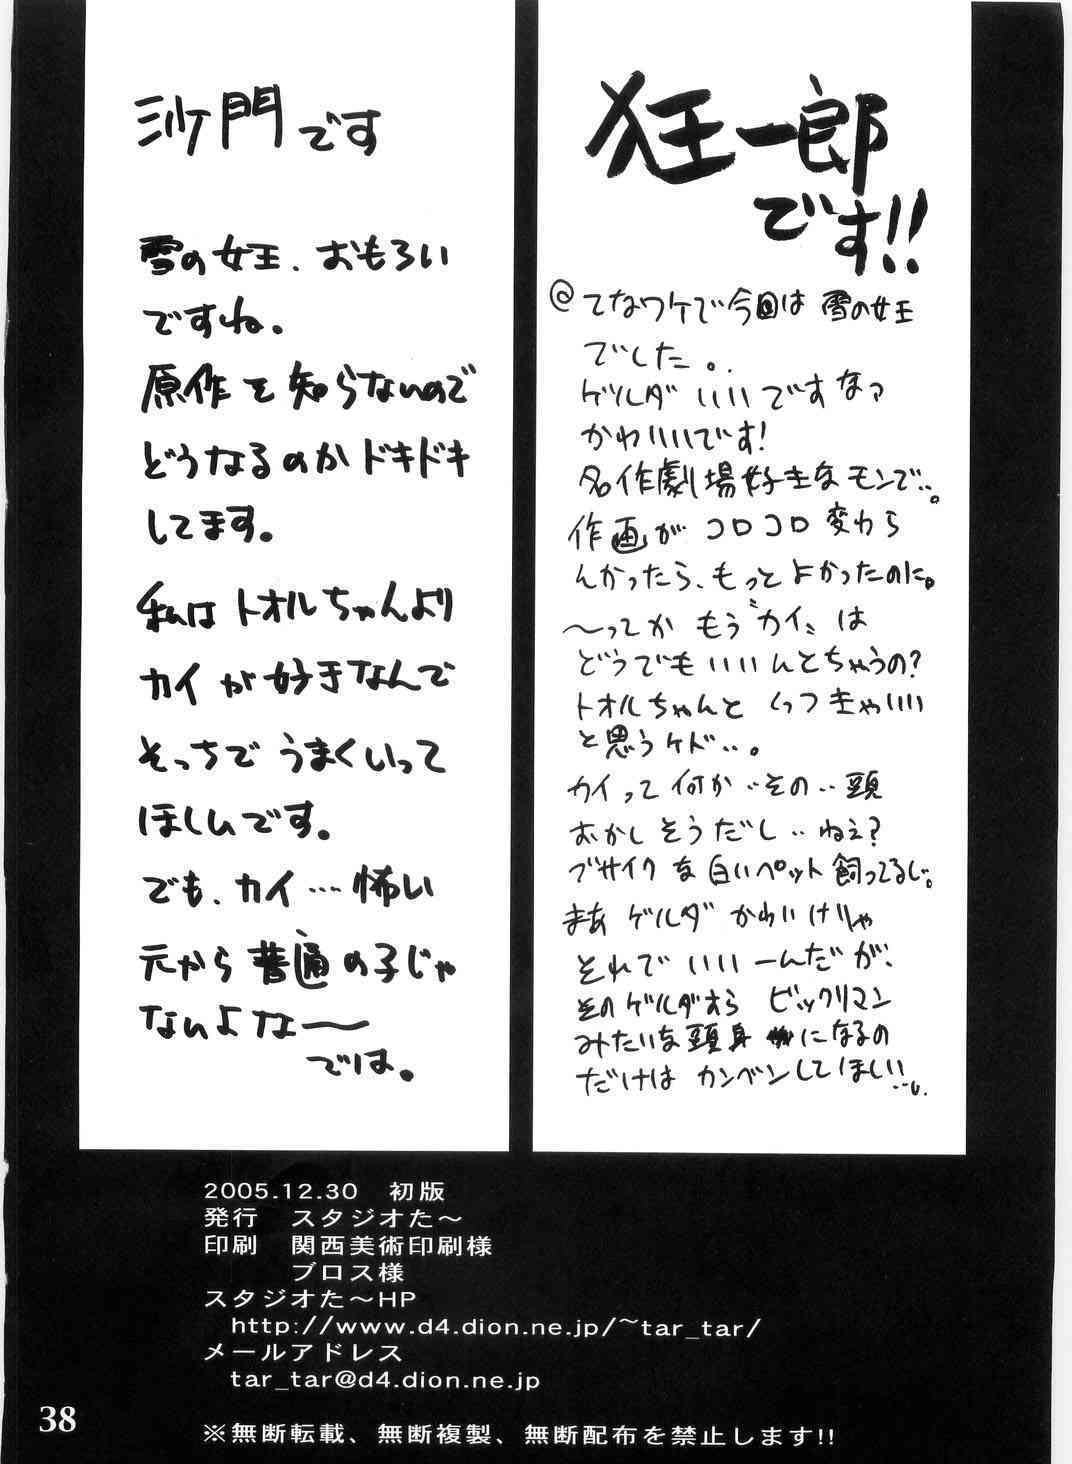 狂一郎
です!!
@てなワケで今回は雪の女王
でした。
ゲルダいいですなァ
かわいいです!
名作劇場好きなモンで…。
作画がコロコロ変わら
んかったら、もっとよかったのに。
〜ってかもう〝カイ〟は
どうでもいいんとちゃうの?
トオルちゃんとくっつきゃいい
と思うケド…。
カイって何か…その…頭
おかしそうだし…ねえ?
ブサイクな白いペット飼ってるし。
まあゲルダかわいけりゃ
それでいいーんだが、
そのゲルダすらビックリマン
みたいな頭身になるの
だけはカンベンしてほしい…。
沙門です
雪の女王、おもろい
ですね。
原作を知らないので
どうなるのかドキドキ
してます。
私はトオルちゃんより
カイが好きなんで
そっちでうまくいって
ほしいです。
でも、カイ…怖い
元から普通の子じゃ
ないよな〜
では。
2005.12.30 初版
発行 スタジオた〜
印刷 関西美術印刷様
ブロス様
スタジオた〜HP
http://www.d4.dion.ne.jp/~tar_tar/
メールアドレス
tar_tar@d4.dion.ne.jp
38
※無断転載、無断複製、無断配布を禁止します!!